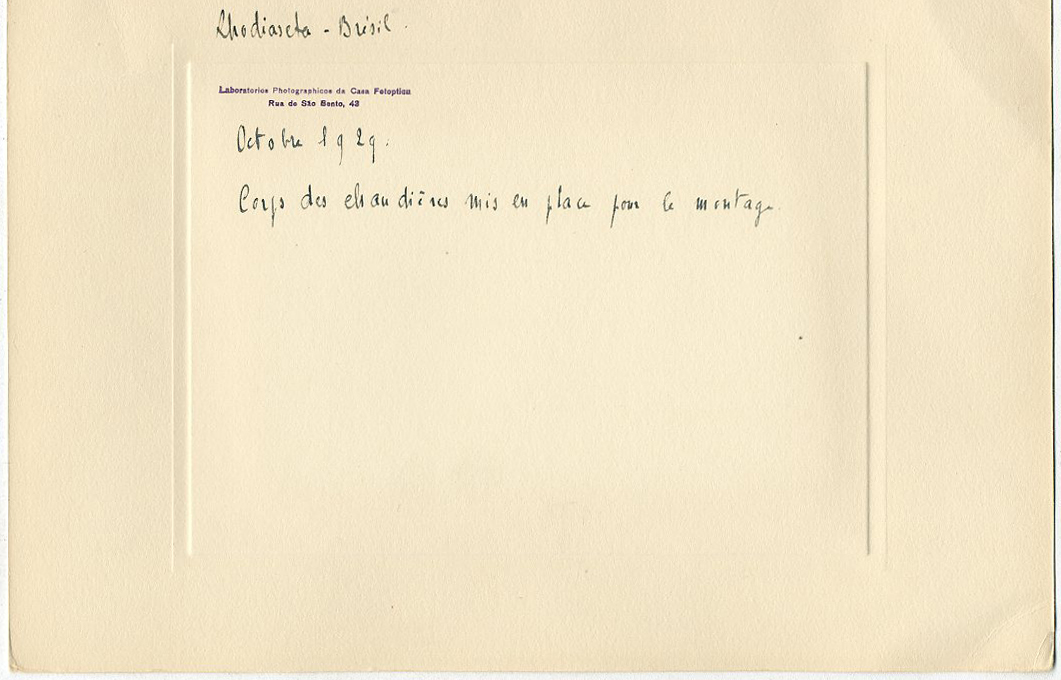 Rhodiaseta - Brésil.
Laboratorios Photographicos da Casa Fotoptica
Rua de São Bento, 43
Octobre 1929.
Corps des chaudières mis en place pour le montage.